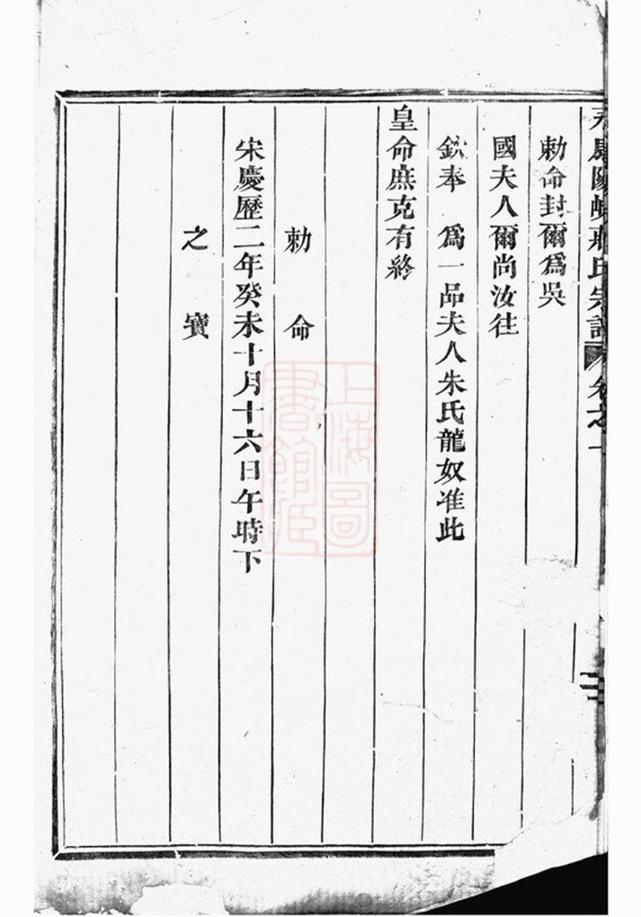 氏宗譜 卷之一
勅命封爾爲吳
國夫人爾尚汝往
欽奉　爲一品夫人朱氏龍奴准此
皇命庶克有終
勅　命
宋慶歷二年癸未十月十六日午時下
之　寶
上海圖
書館藏